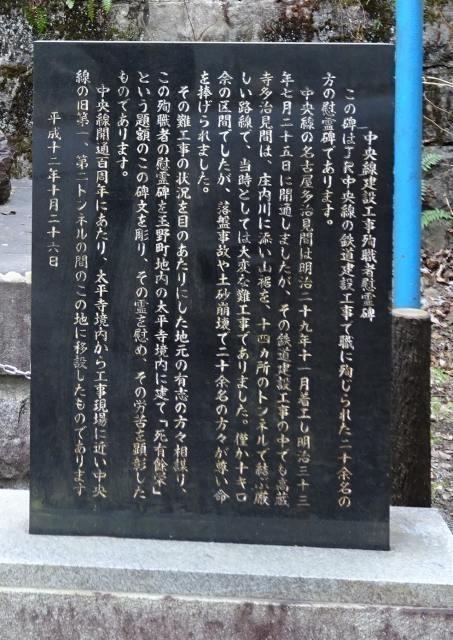 中央線建設工事殉職者慰霊碑
この碑はJR中央線の鉄道建設工事で職に殉じられた二十余名の
方の慰霊碑であります。
中央線の名古屋多治見間は明治二十九年十一月着工し明治三十三
年七月二十五日に開通しましたが、その鉄道建設工事の中でも高蔵
寺多治見間は、庄内川に添い山裾を、十四ヵ所のトンネルで結ぶ厳
しい路線で、当時としては大変な難工事でありました。僅か十キロ
余の区間でしたが、落盤事故や土砂崩壊で二十余名の方々が尊い命
を捧げられました。
その難工事の状況を目のあたりにした地元の有志の方々相謀り、
この殉職者の慰霊碑を玉野町地内の太平寺境内に建て「死有餘栄」
という題額のこの碑文を彫り、その霊を慰め、その労苦を顕彰した
ものであります。
中央線開通百周年にあたり、太平寺境内から工事現場に近い中央
線の旧第一、第二トンネルの間のこの地に移設したものであります
平成十二年十月二十六日